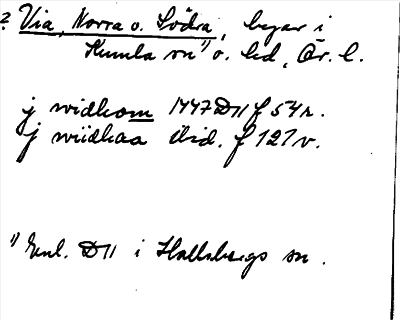 ? Via, Norra o. Södra, byar i
Kumla sn ¹) o. hd, Ör. l.
j widhom 1447 D11 f 54 r.
j wiidhaa ibid. f 127 v.
¹) Enl. D11 i Hallsbergs sn.